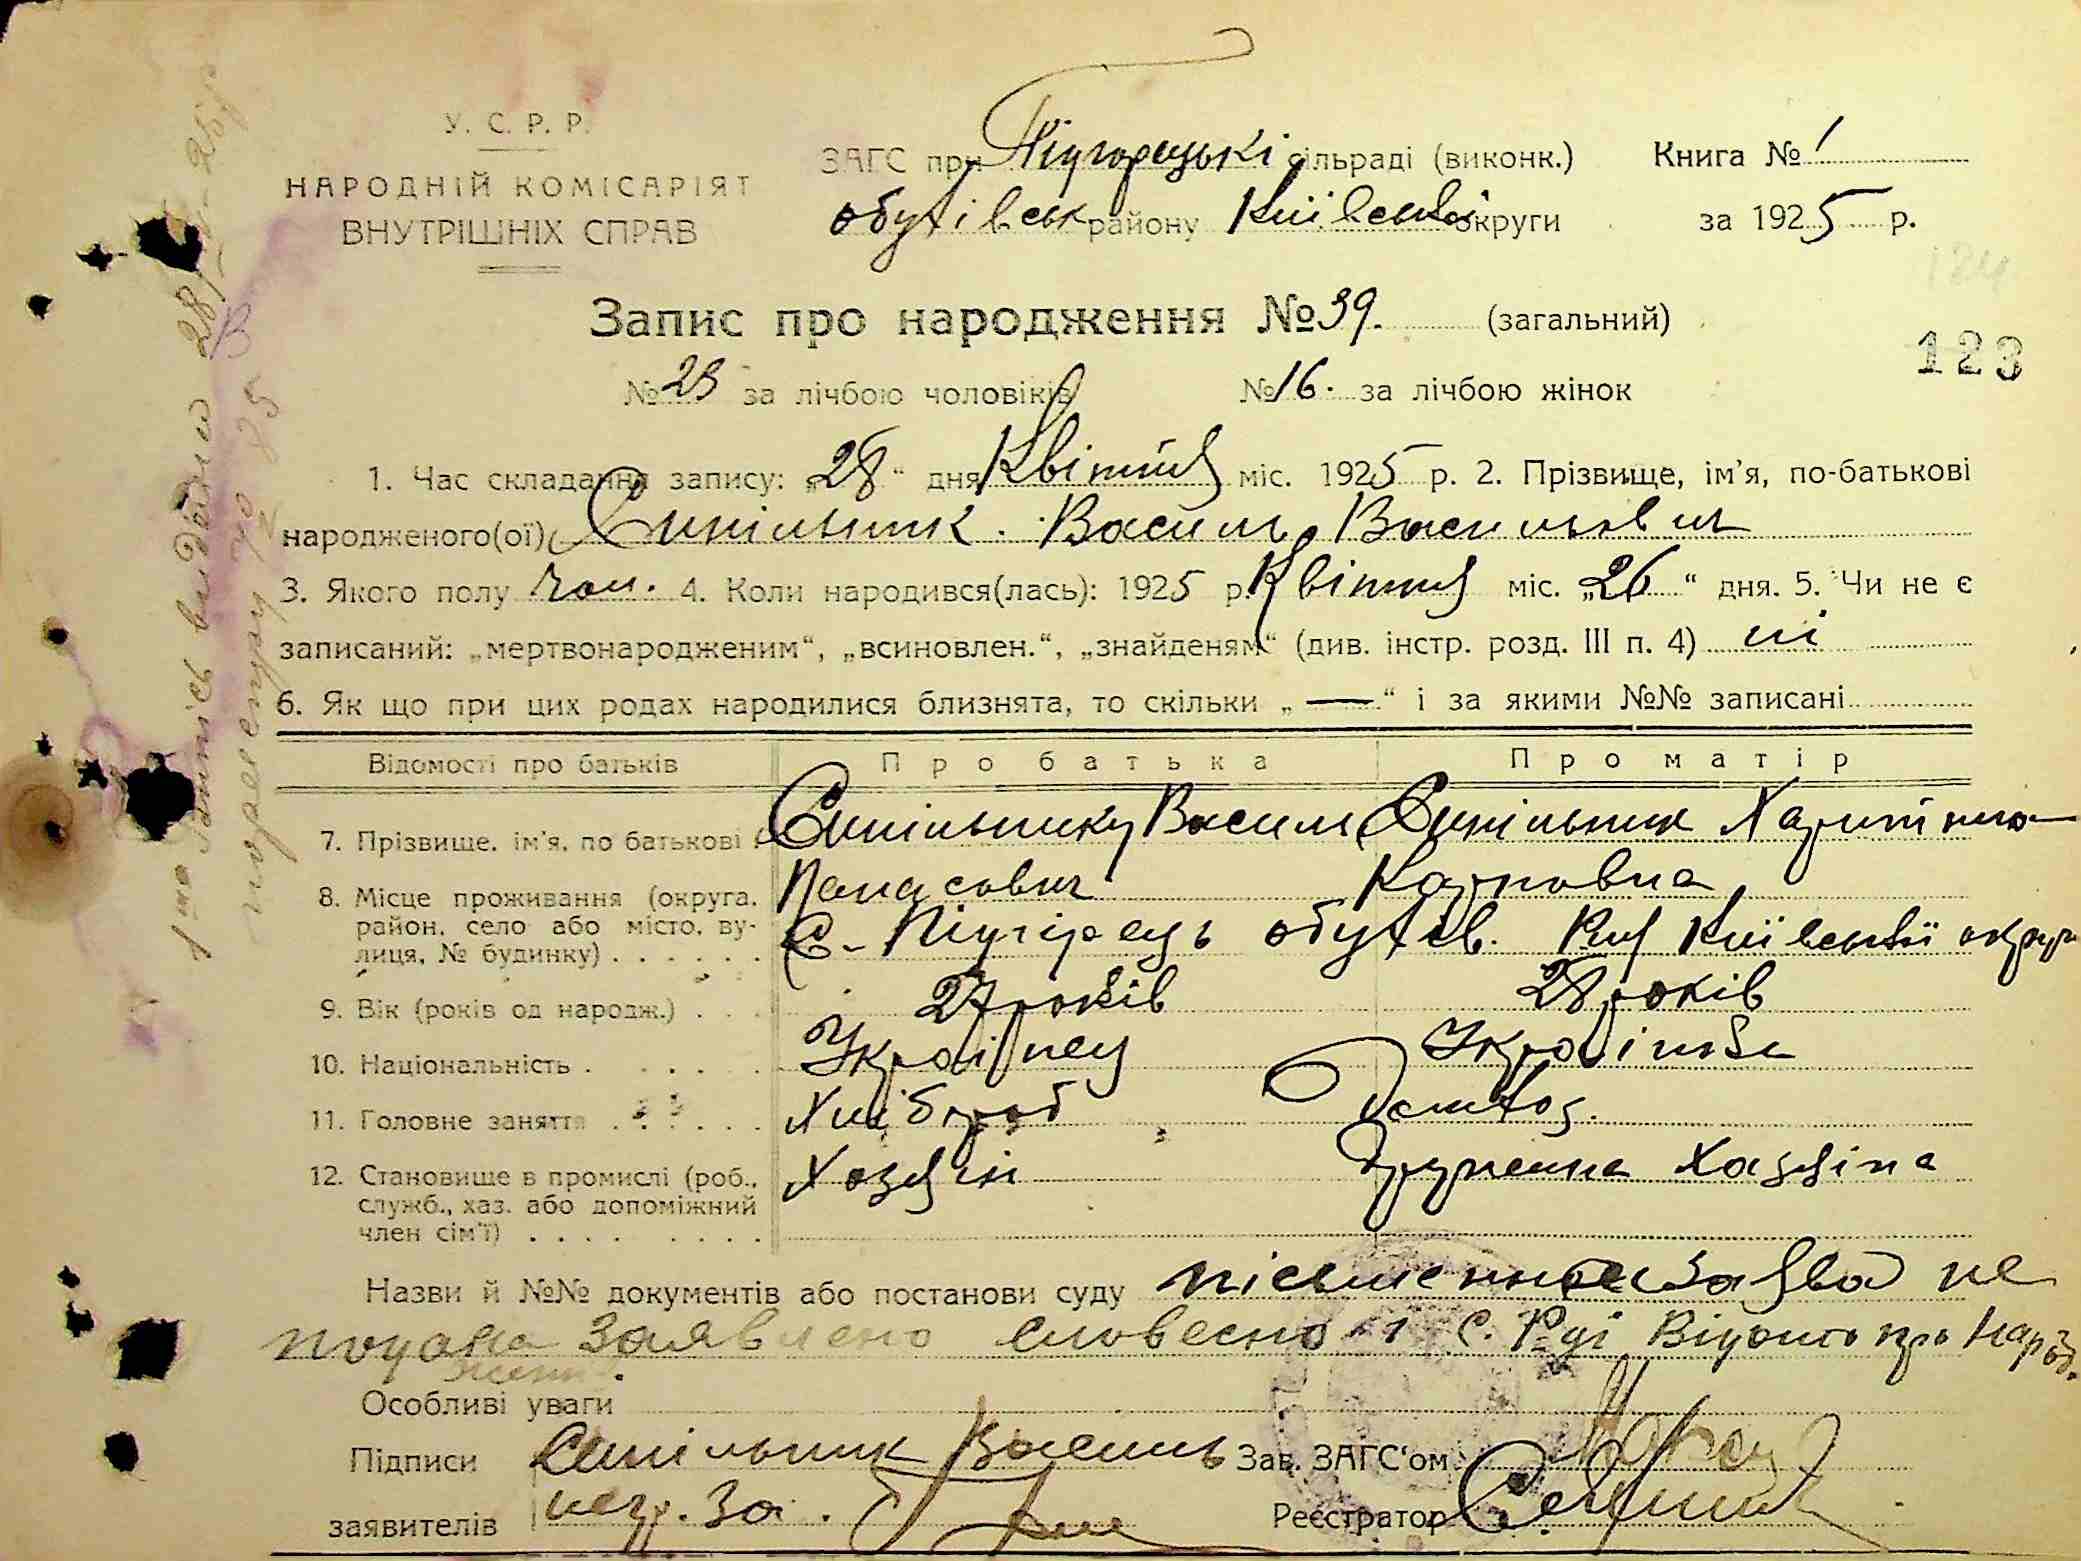 У. С. Р. Р.
НАРОДНІЙ КОМІСАРІЯТ
ВНУТРІШНІХ СПРАВ
ЗАГС при Підгорецькі сільраді (виконк.) Книга № 1
обухівськ району Київської округи за 1925 р.
Запис про народження № 39. (загальний)
123
№ 23 за лічбою чоловіків № 16. за лічбою жінок
1. Час складання запису: „28“ дня Квітня міс. 1925 р. 2. Прізвище, ім'я, по-батькові
народженого(ої) Синільник Василь Васильович
3. Якого полу чол. 4. Коли народився(лась): 1925 р. Квітня міс. „26“ дня. 5. Чи не є
записаний: „мертвонародженим“, „всиновлен.“, „знайденям“ (див. інстр. розд. III п. 4) ні
6. Як що при цих родах народилися близнята, то скільки „—“ і за якими №№ записані
Відомості про батьків Про батька Про матір
7. Прізвище, ім'я, по батькові Василь Панасович Карповна
8. Місце проживання (округа, район, село або місто, вулиця, № будинку) С. Підгірець обухів. Київської округи
9. Вік (років од народж.) 27 років 28 років
10. Національність Українец Українка
11. Головне заняття Хлібороб Домхоз.
12. Становище в промислі (роб., служб., хаз. або допоміжний член сім'ї) Хозяїн Дружина Хазяіна
Назви й №№ документів або постанови суду пісьменная заява не
подана заявлено словесно С. Раді Відомо про Народ.
Особливі уваги
Підписи Василь Зав. ЗАГС'ом
заявителів негр. За Реєстратор